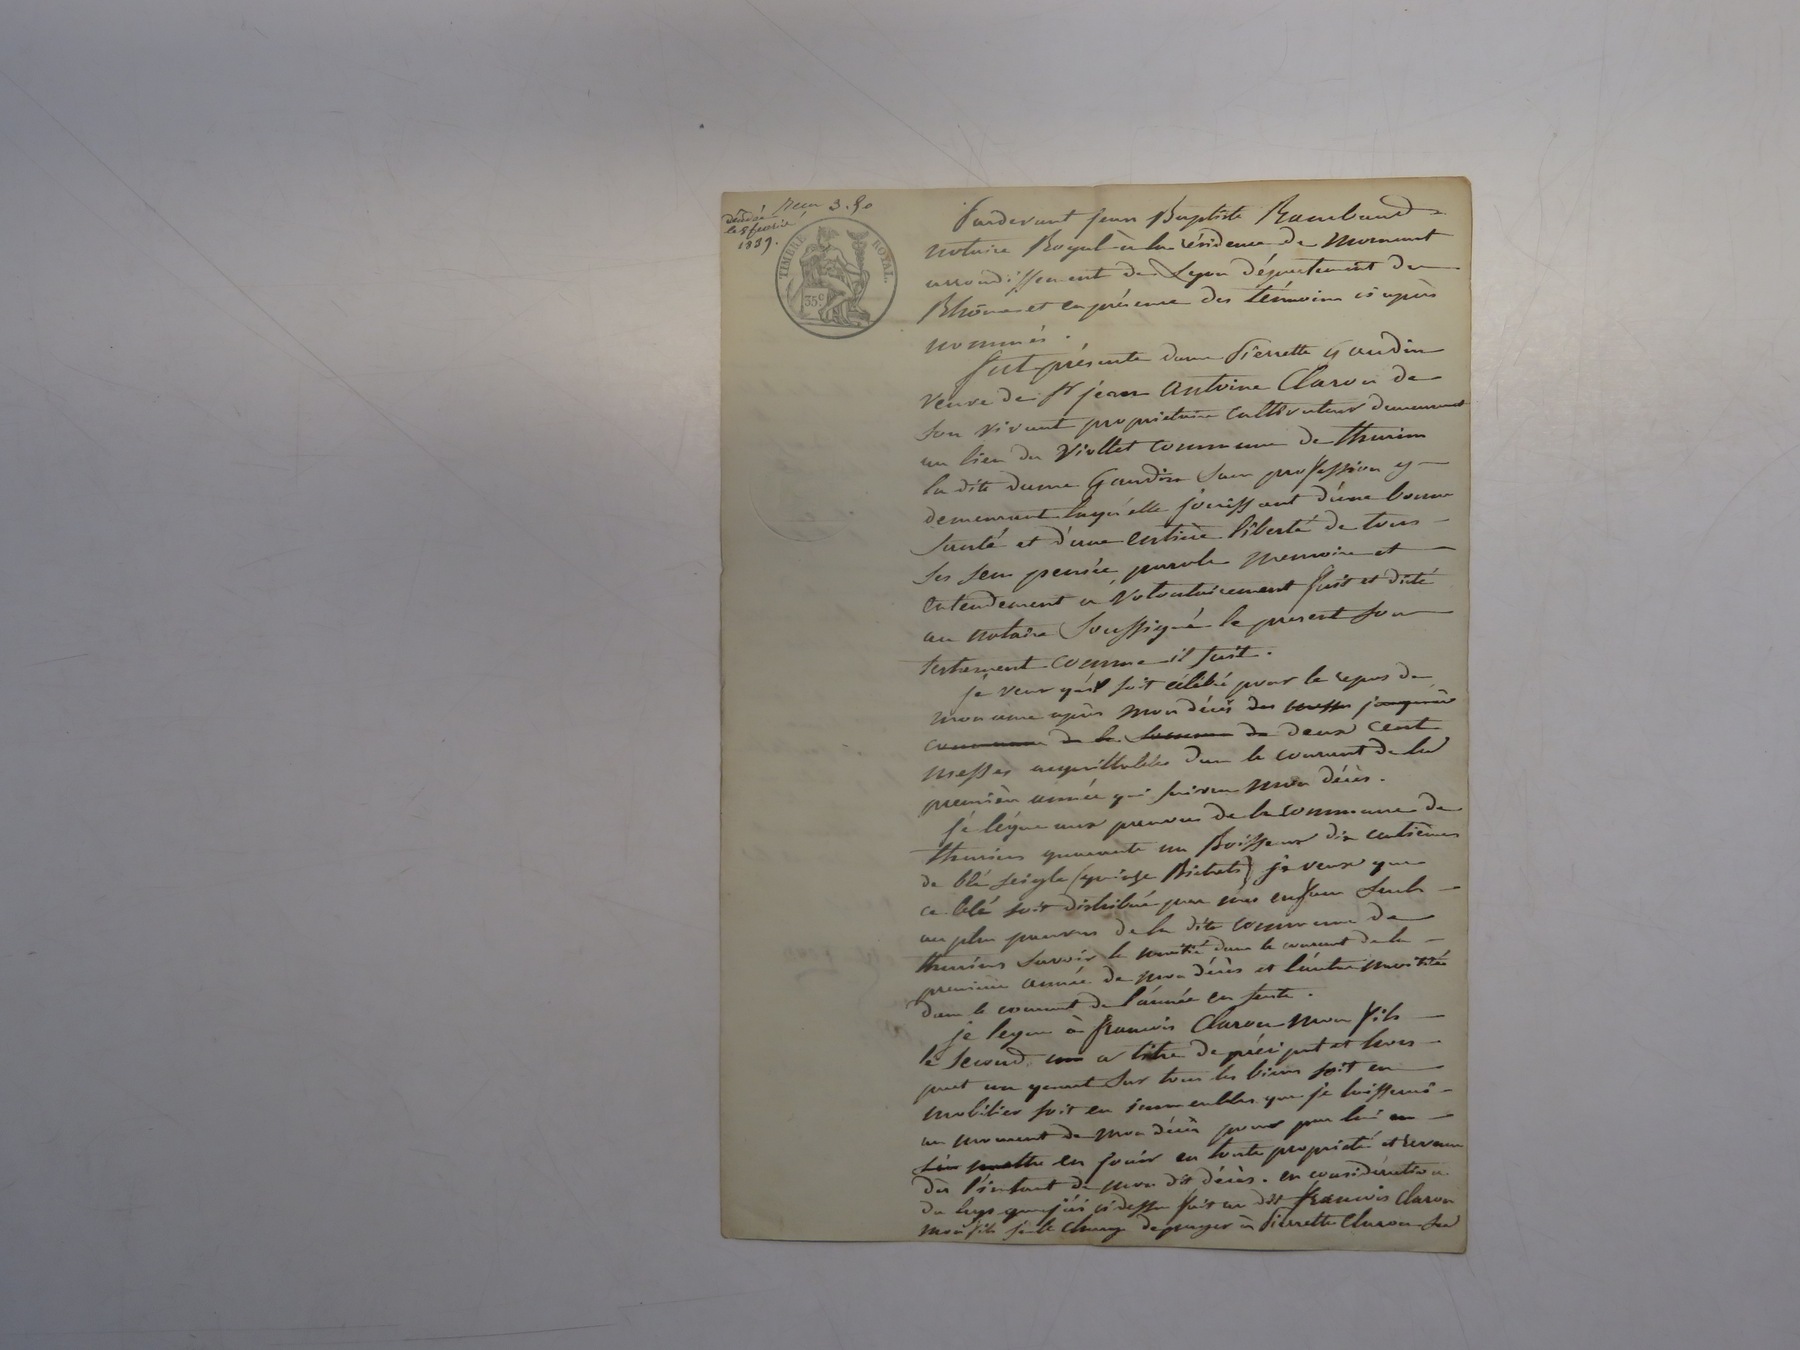 Reçu 3.50
décédée
le 8 février
1839.
TIMBRE ROYAL
35c
Pardevant jean Baptiste Rambaud
notaire Royal à la résidence de mornant
arrondissement de Lyon département du
Rhône et en présence des témoins ci après
nommés.
fut présente dame Pierrette Gaudin
veuve de sr jean Antoine Claron de
son vivant propriétaire cultivateur demeurant
au lieu du Viollet commune de thurins
la dite dame Gaudin sans profession y
demeurant laquelle jouissant d'une bonne
santé et d'une entière liberté de tous
ses sens pensée parole memoire et
entendement a volontairement fait et dicté
au notaire soussigné le present son
testament comme il suit.
je veux qu'il soit célébré pour le repos de
mon ame après mon décès des messes jusqu'à
de la somme de deux cent
messes acquittables dans le courant de la
première année qui suivra mon décès.
je lègue aux pauvres de la commune de
thurins quarante un Boisseaux dix centièmes
de blé seigle (quinze Bichets) je veux que
ce blé soit distribué par mes enfans
au plus pauvres de la dite commune de
thurins savoir la moitié dans le courant de la
première année de mon décès et l'autre moitié
dans le courant de l'année en suite.
je legue à francois Claron mon fils
le second a titre de préciput et hors
part un quart sur tous les biens soit en
mobilier soit en immeubles que je laisserai
au moment de mon décès pour par lui en
jouir en toute propriété et revenu
dès l'instant de mon dit décès. en considération
du legs que j'ai ci dessus fait au dit francois Claron
mon fils je le charge de payer à Pierrette Claron sa